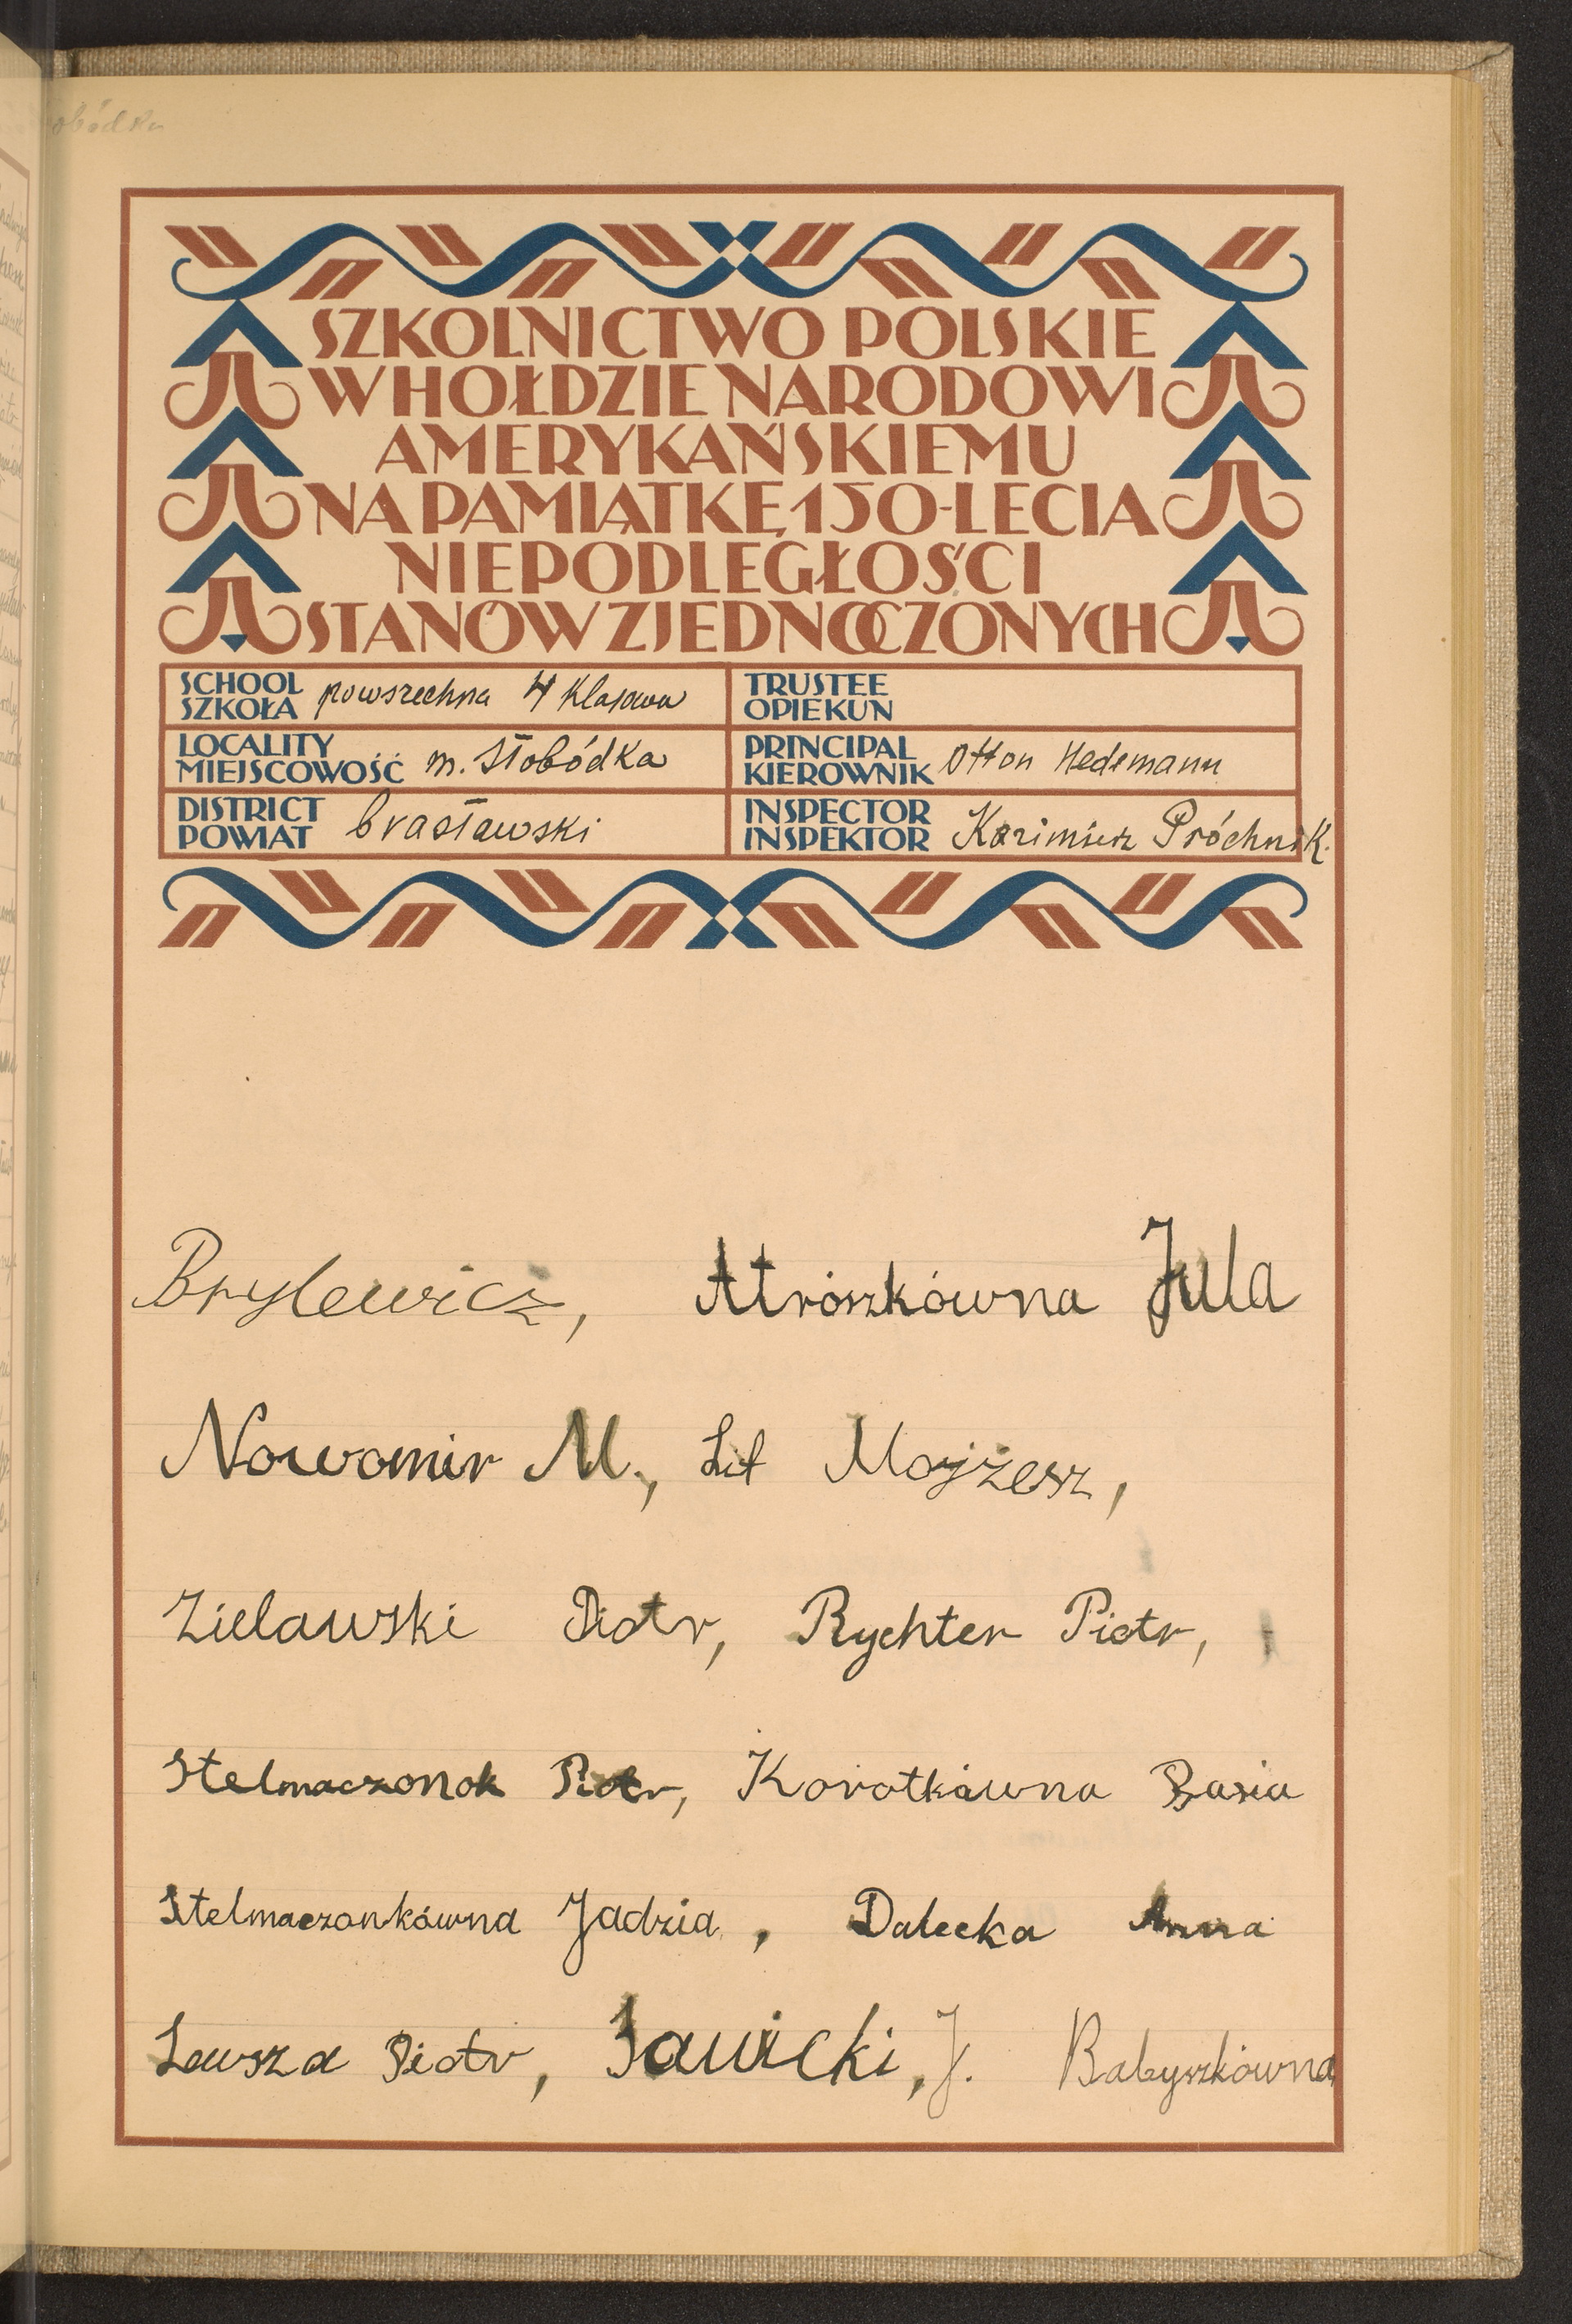 SZKOLNICTWO POLSKIE
W HOŁDZIE NARODOWI
AMERYKAŃSKIEMU
NA PAMIĄTKĘ 150-LECIA
NIEPODLEGŁOŚCI
STANÓW ZJEDNOCZONYCH
SCHOOL SZKOŁA powszechna 4 klasowa
TRUSTEE OPIEKUN
LOCALITY MIEJSCOWOŚĆ m. Słobódka
PRINCIPAL KIEROWNIK Otton Hedemann
DISTRICT POWIAT brasławski
INSPECTOR INSPEKTOR Kazimierz Próchnik.
Brylewicz, Atroszkówna Jula
Nowomir M., Lit Mojżesz,
Zielawski Piotr, Rychter Piotr,
Stelmaczonok Piotr, Korotkówna Basia
Stelmaczonkówna Jadzia, Dalecka Anna
Lawsza Piotr, Sawicki, J. Babyszkówna